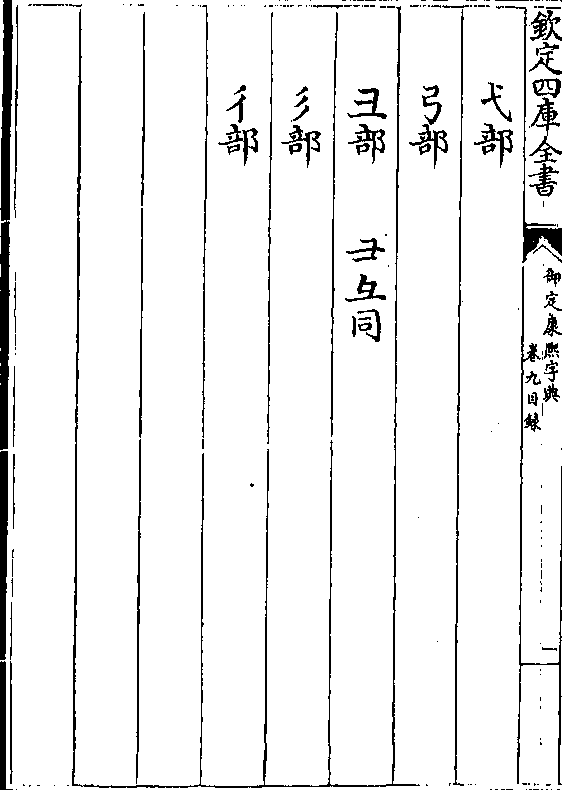 欽定四庫全書
御定康熙字典
卷九目錄
一
弋部
弓部
彐部 彑同
彡部
彳部